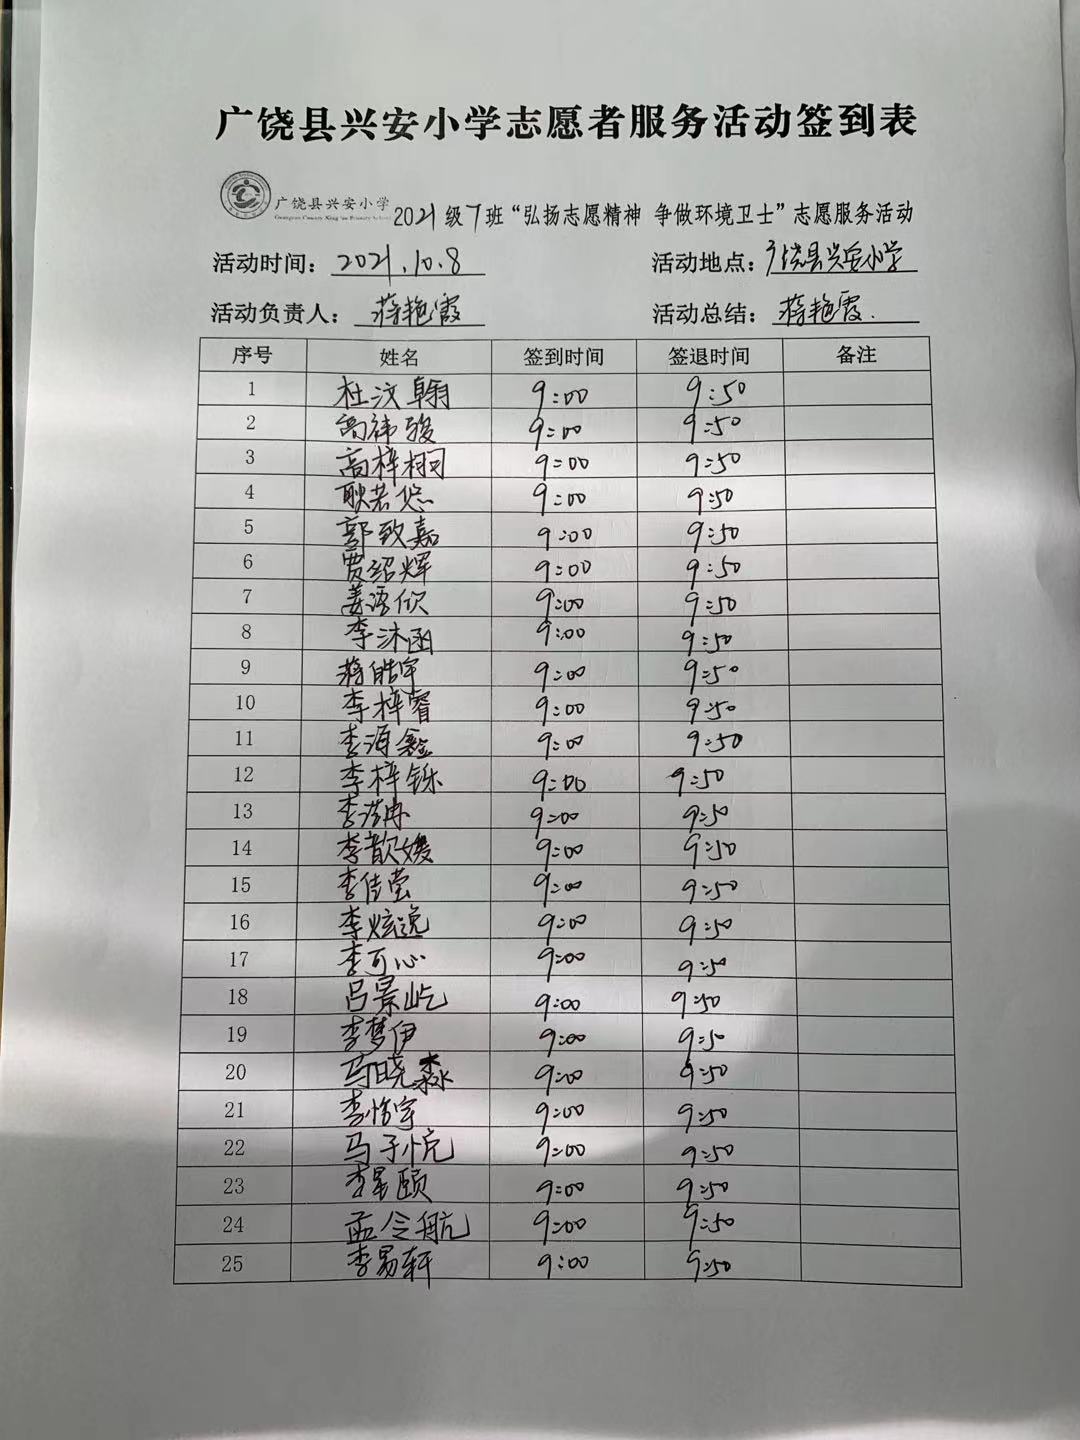 广饶县兴安小学志愿者服务活动签到表
广饶县兴安小学
2021级7班“弘扬志愿精神 争做环境卫士”志愿服务活动
活动时间：2021.10.8 活动地点：广饶县兴安小学
活动负责人：蒋艳霞 活动总结：蒋艳霞.
序号 姓名 签到时间 签退时间 备注
1 杜汶翰 9:00 9:50
2 高祎骏 9:00 9:50
3 高梓栩 9:00 9:50
4 耿若悠 9:00 9:50
5 郭致嘉 9:00 9:50
6 贾绍辉 9:00 9:50
7 姜语欣 9:00 9:50
8 李沐函 9:00 9:50
9 蒋皓宇 9:00 9:50
10 李梓睿 9:00 9:50
11 李海鑫 9:00 9:50
12 李梓铄 9:00 9:50
13 李浩冉 9:00 9:50
14 李歆媛 9:00 9:50
15 李佳莹 9:00 9:50
16 李炫逸 9:00 9:50
17 李可心 9:00 9:50
18 吕景屹 9:00 9:50
19 李梦伊 9:00 9:50
20 马晓淼 9:00 9:50
21 李怡宇 9:00 9:50
22 马子悦 9:00 9:50
23 李星颐 9:00 9:50
24 孟令航 9:00 9:50
25 李易轩 9:00 9:50